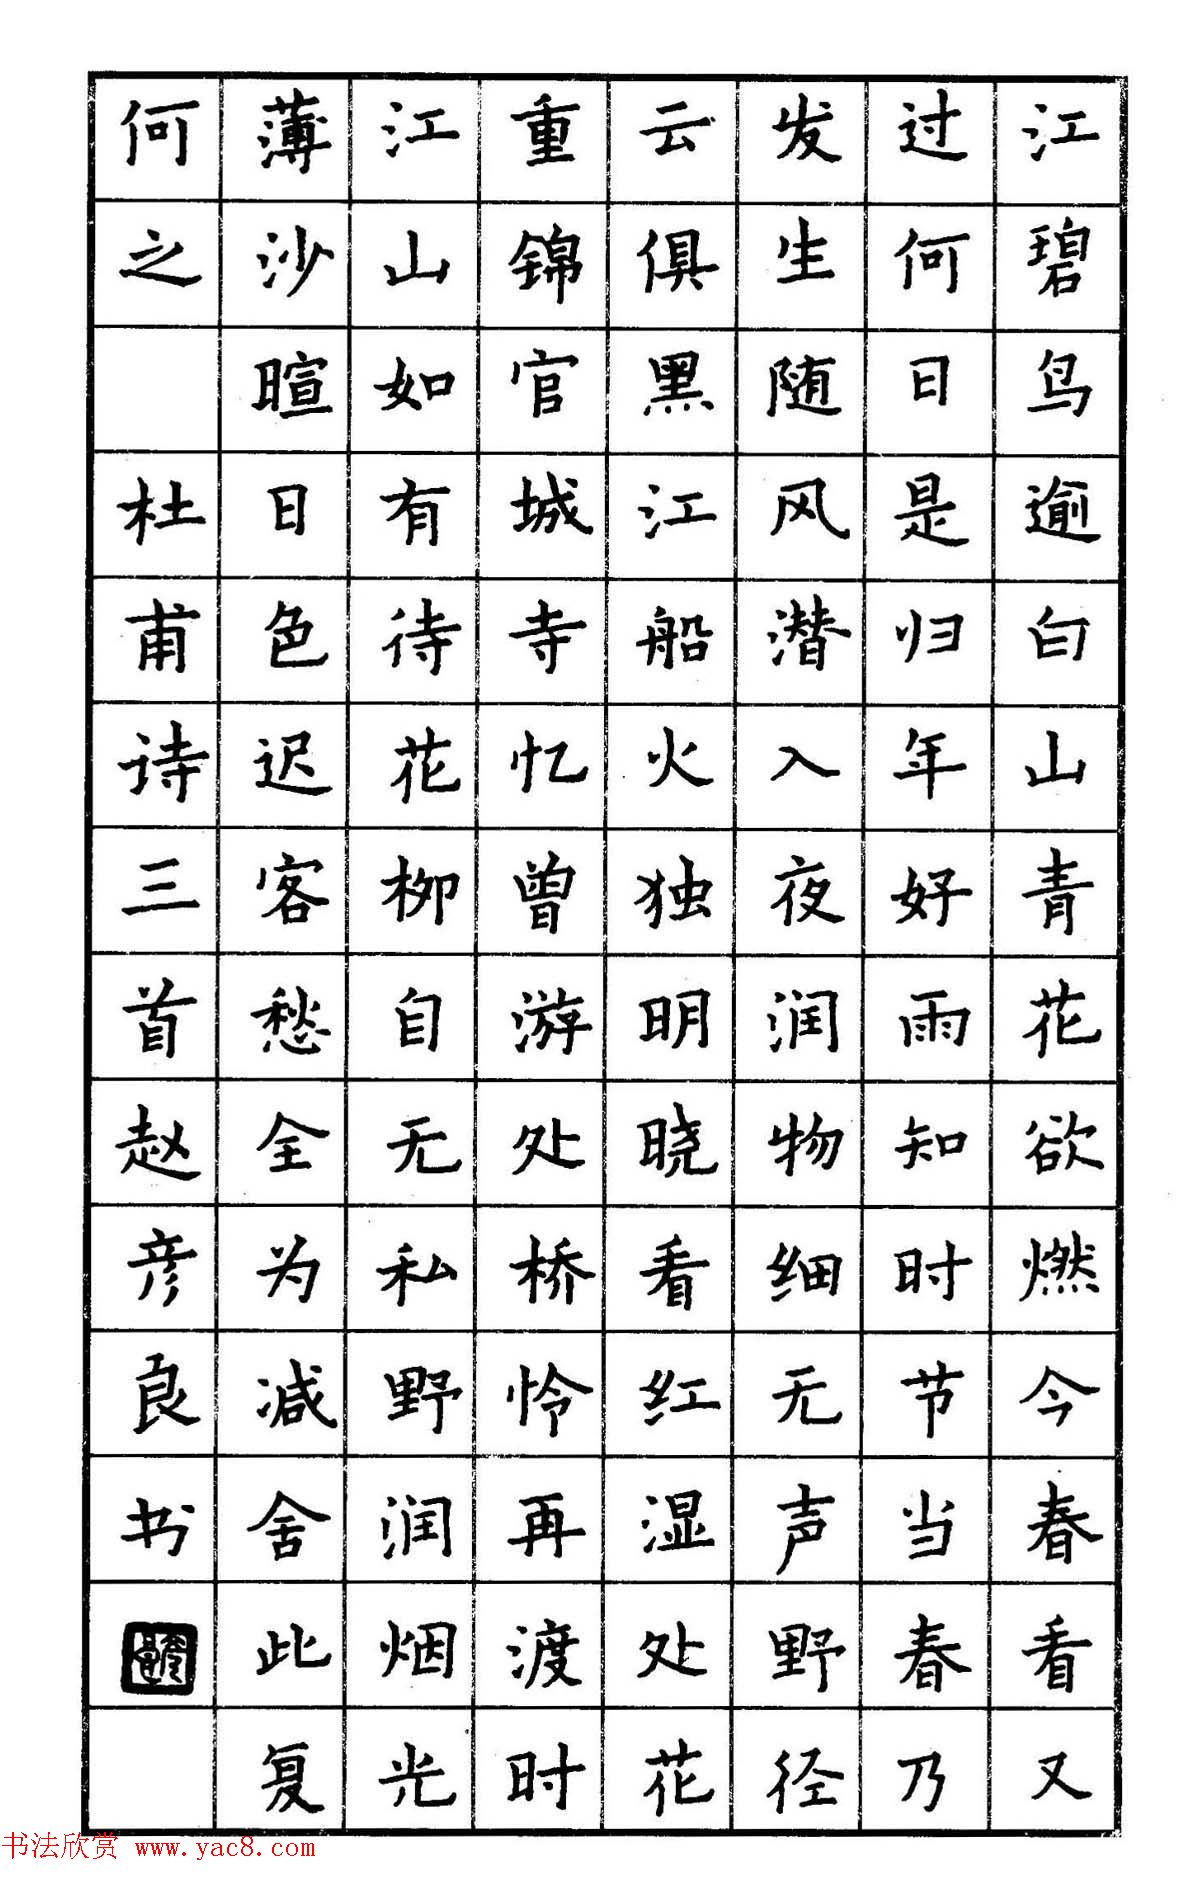 江碧鸟逾白山青花欲燃今春看又
过何日是归年好雨知时节当春乃
发生随风潜入夜润物细无声野径
云俱黑江船火独明晓看红湿处花
重锦官城寺忆曾游处桥怜再渡时
江山如有待花柳自无私野润烟光
薄沙暄日色迟客愁全为减舍此复
何之 杜甫诗三首赵彦良书
书法欣赏 www.yac8.com